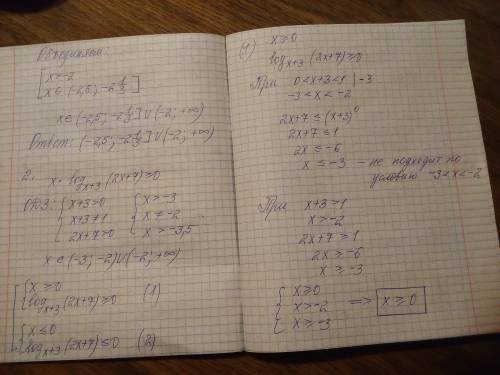 Объединяем:
[ x > -2
x ∈ (-2,5; -2 1/3]
x ∈ (-2,5; -2 1/3] ∪ (-2; +∞)
Ответ: (-2,5; -2 1/3] ∪ (-2; +∞)
2. x · log_{x+3} (2x+7) ≥ 0
ОДЗ: { x+3>0 { x > -3
x+3≠1 x ≠ -2
2x+7>0 x > -3,5
x ∈ (-3; -2) ∪ (-2; +∞)
[ { x ≥ 0
log_{x+3} (2x+7) ≥ 0 (1)
{ x ≤ 0
log_{x+3} (2x+7) ≤ 0 (2)
(1) x ≥ 0
log_{x+3} (2x+7) ≥ 0
При 0 < x+3 < 1 | -3
-3 < x < -2
2x+7 ≤ (x+3)^0
2x+7 ≤ 1
2x ≤ -6
x ≤ -3 - не подходит по
условию -3<x<-2
При x+3 > 1
x > -2
2x+7 ≥ 1
2x ≥ -6
x ≥ -3
{ x ≥ 0
x > -2 => x ≥ 0
x ≥ -3